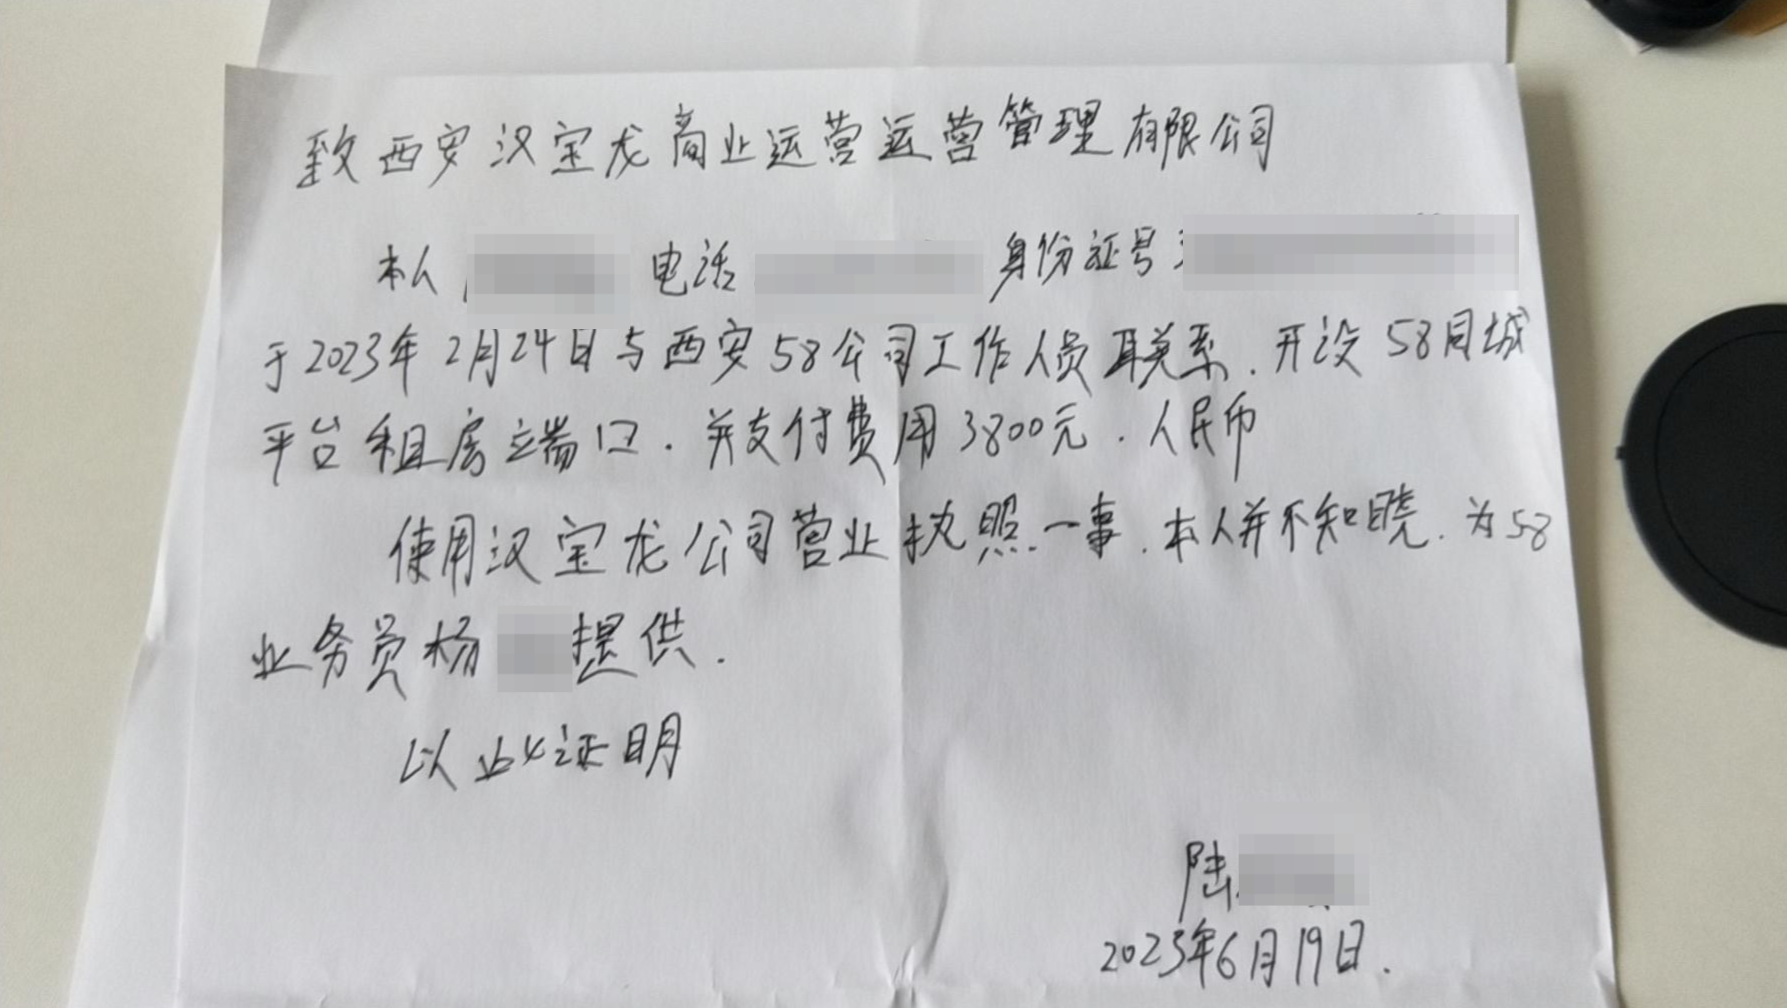 致西安汉宝龙商业运营运营管理有限公司
本人 电话 身份证号
于2023年2月24日与西安58公司工作人员联系.开设58同城
平台租房端口.并支付费用3800元.人民币
使用汉宝龙公司营业执照一事.本人并不知晓.为58
业务员杨 提供.
以此证明
陆
2023年6月19日.